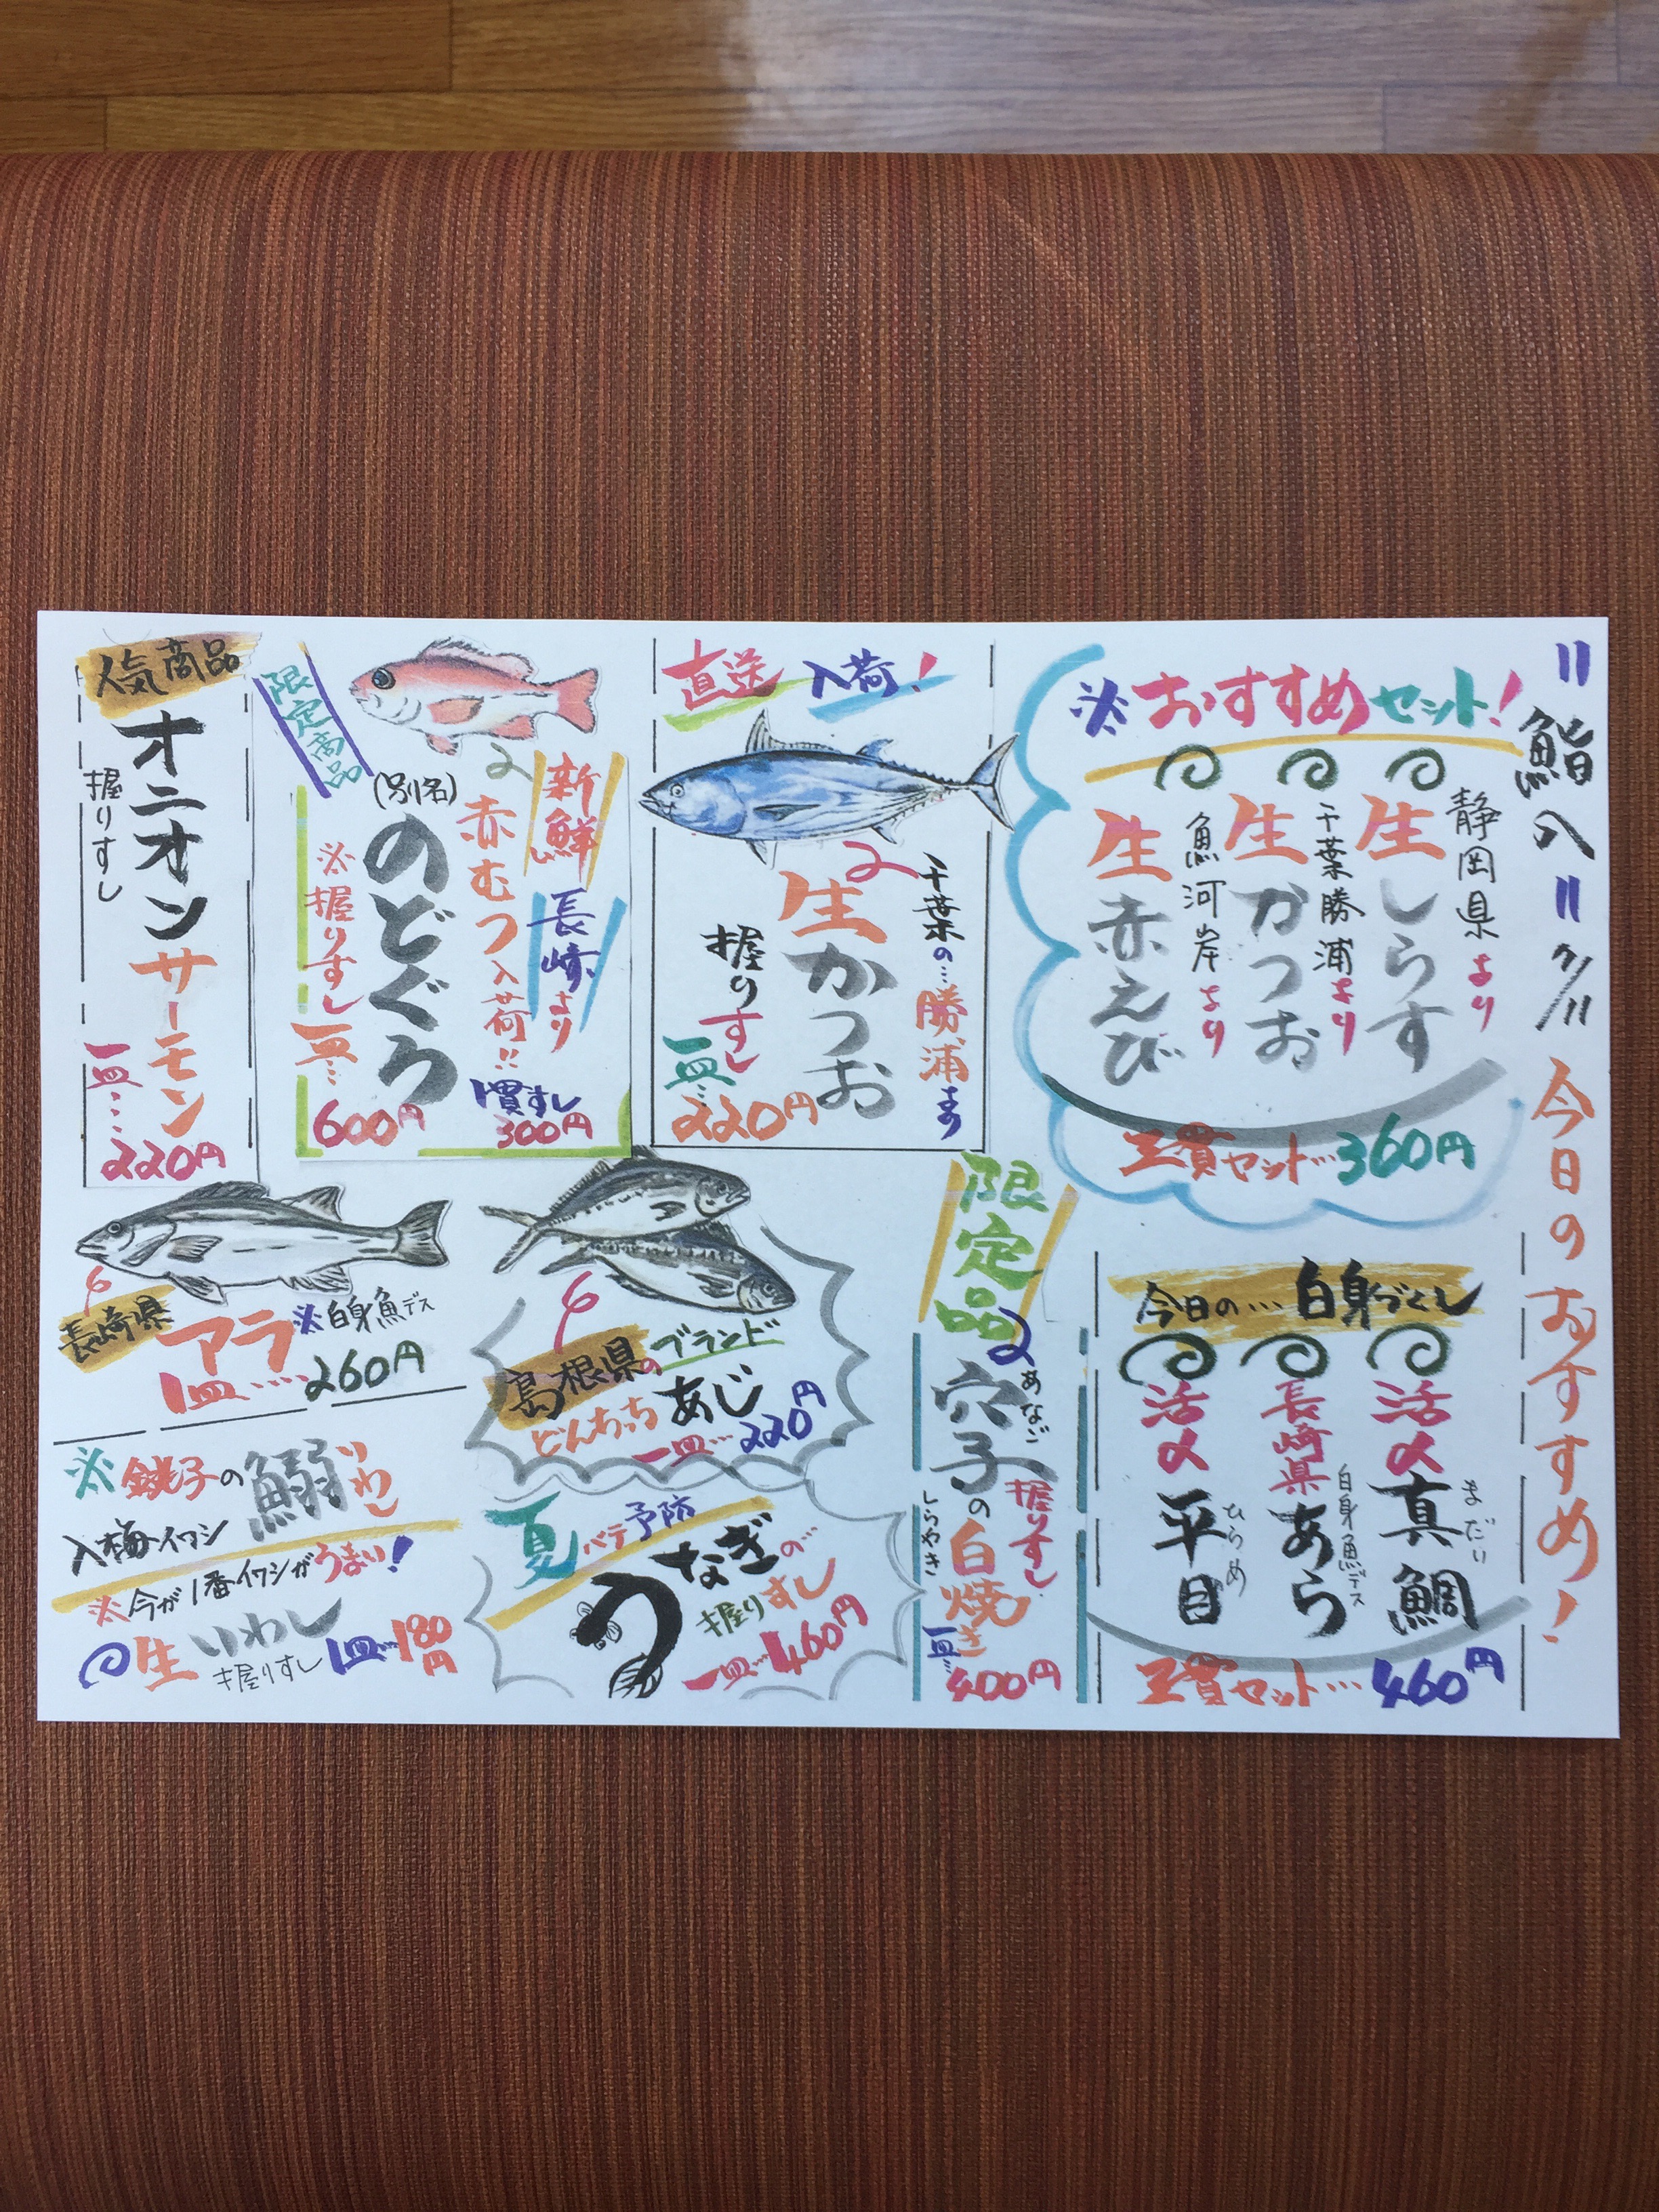 〃鮨八〃 7/11 今日のおすすめ!
※おすすめセット!
静岡県より
生しらす
千葉勝浦より
生かつお
魚河岸より
生赤えび
三貫セット…360円
今日の…白身づくし
活〆真鯛
まだい
長崎県あら
白身魚デス
活〆平目
ひらめ
三貫セット…460円
直送入荷!
千葉の…勝浦より
生かつお
握りすし
一皿…220円
限定商品
新鮮長崎より
赤むつ入荷!!
(別名)
のどぐろ
※握りすし
一皿…600円
一貫すし
300円
人気商品
オニオンサーモン
握りすし
一皿…220円
限定品
穴子の白焼き
あなご
しらやき
握りすし
一皿…400円
島根県のブランド
どんちっちあじ
一皿…220円
夏バテ予防
うなぎの
握りすし
一皿…460円
長崎県
アラ※白身魚デス
1皿…260円
※銚子の鰯いわし
入梅イワシ
※今が1番イワシがうまい!
生いわし
握りすし1皿…180円